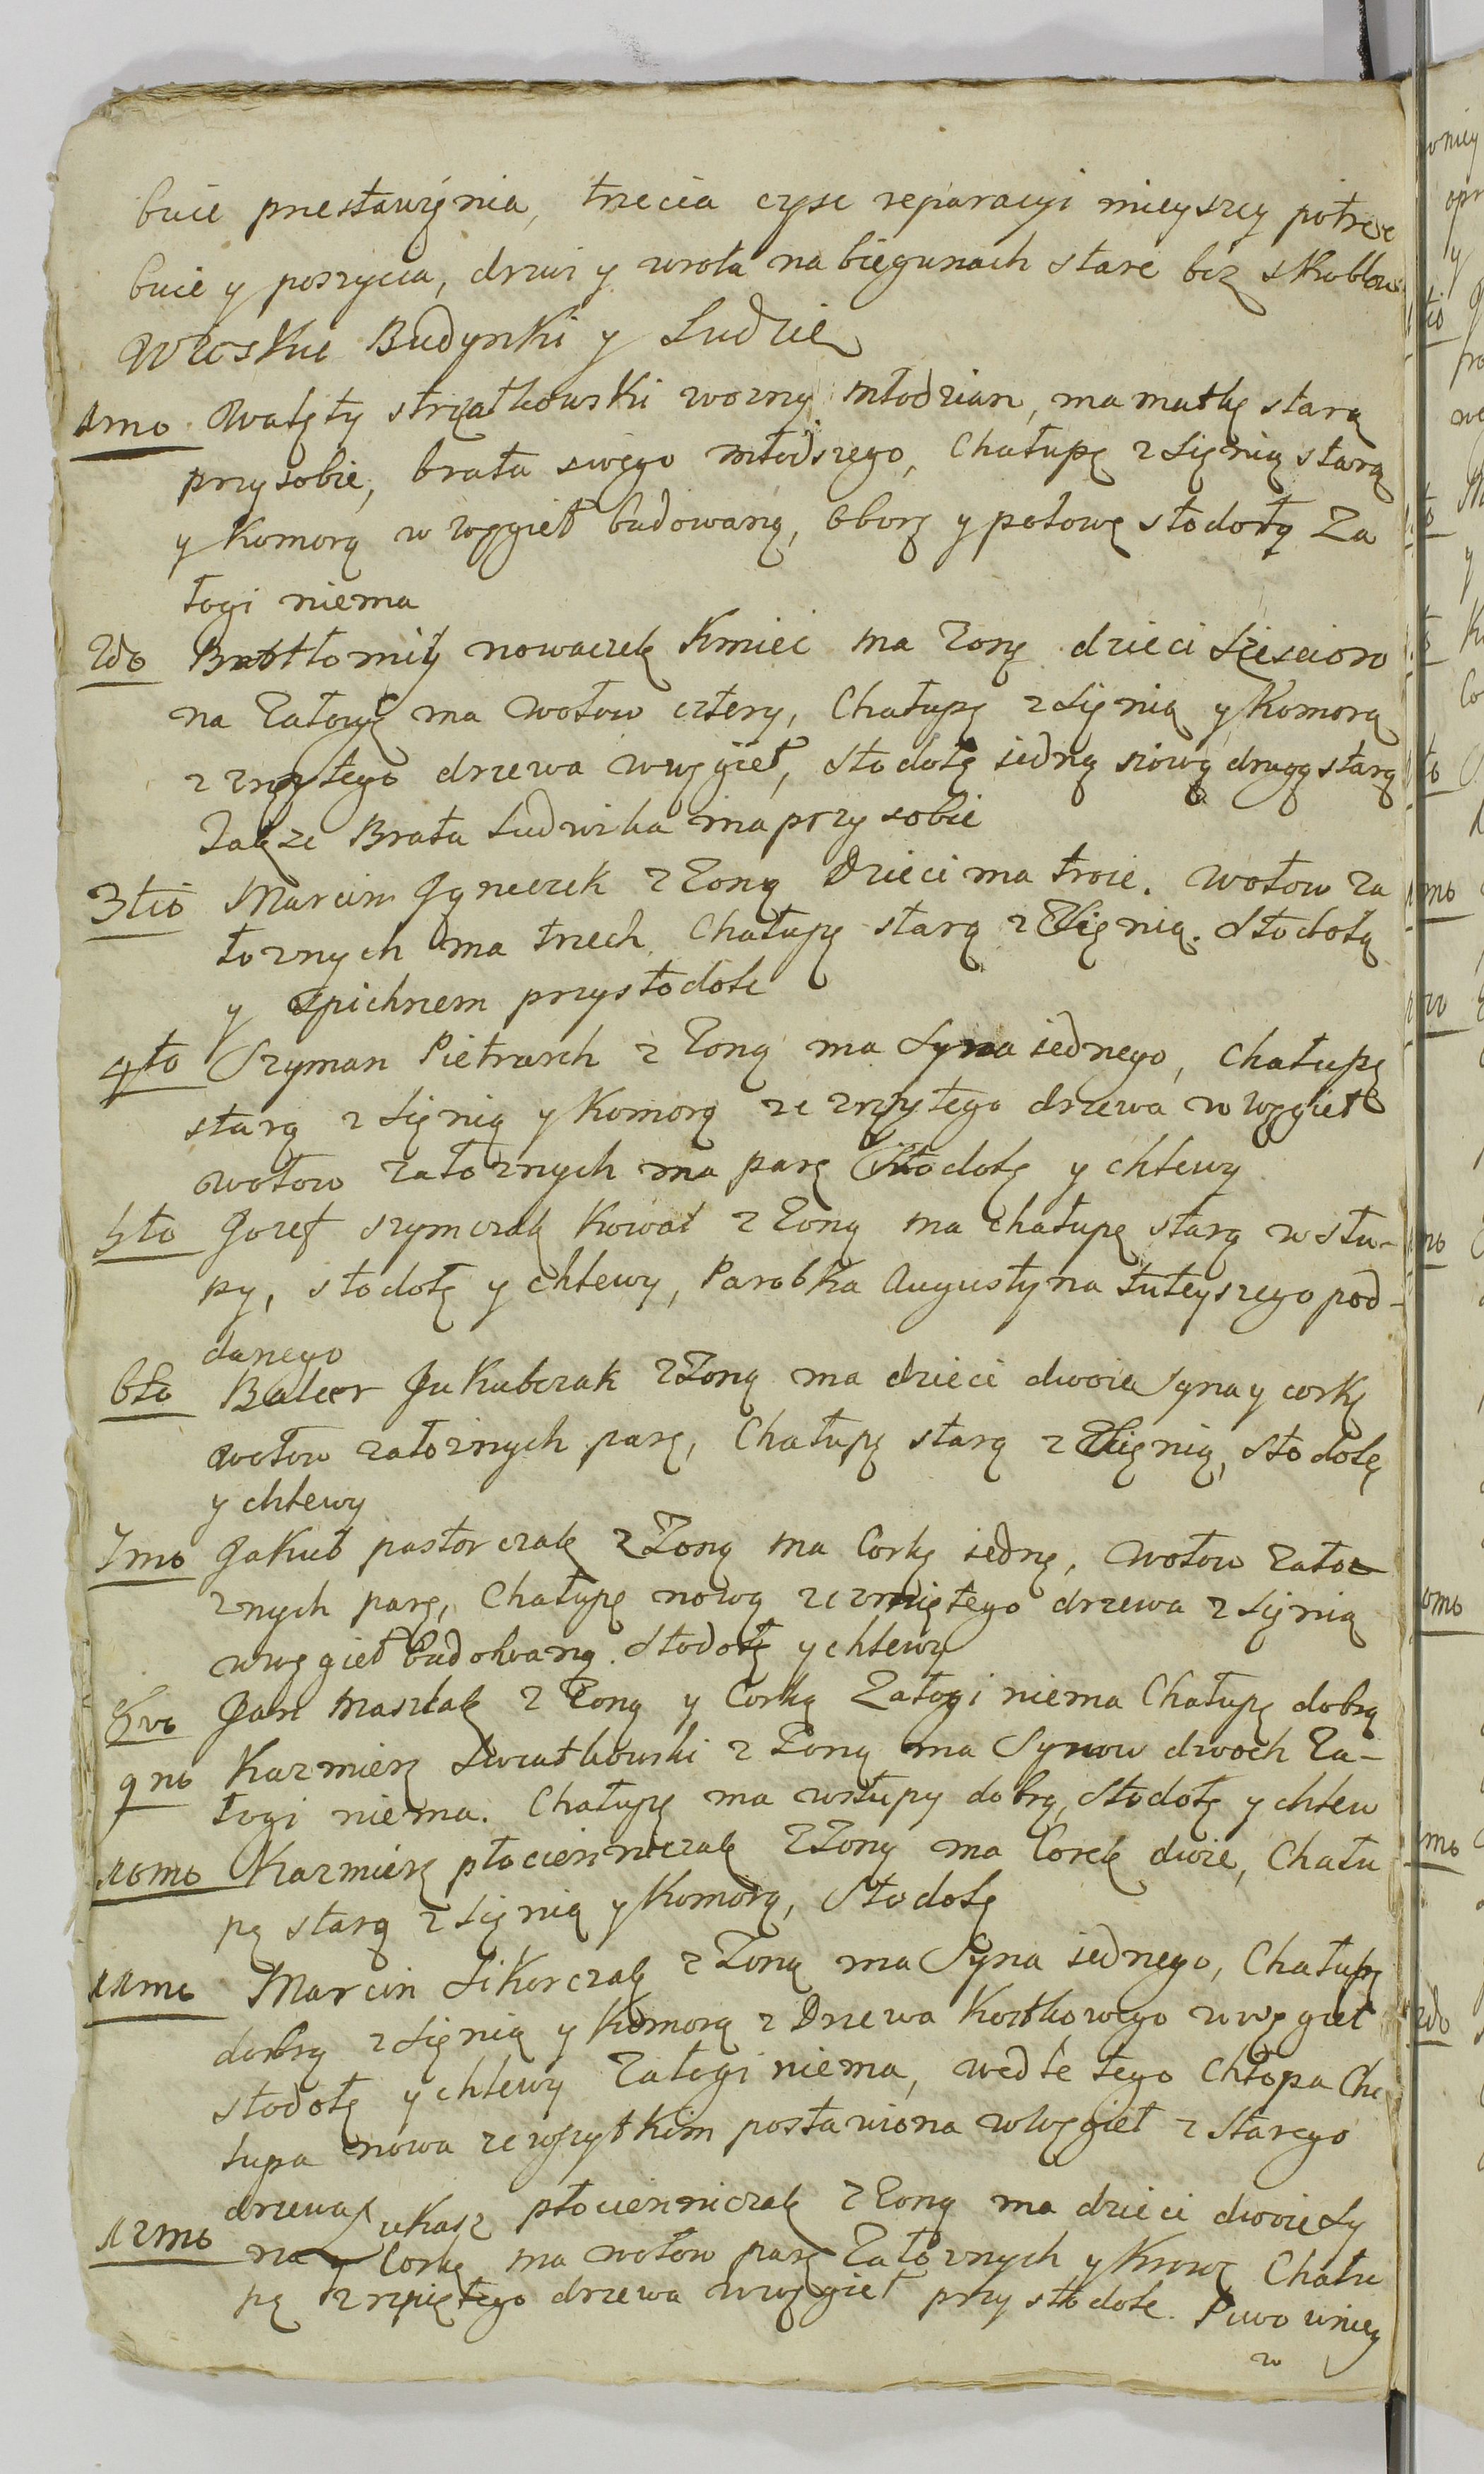 buie przestawięnia, trzecia część reparacyi mieyszey potrze
buie y poszycia, drzwi y wrota na biegunach stare bez skoblow
Wieskie Budynki y Ludzie
1mo Walęty strząłkowski wozny młodzian, ma matkę starą
przy sobie, brata swego młodszego, Chałupę z Sięnią starą
y Komorą w węgieł budowaną, Oborę y połowę stodoły Za
łogi niema
2do Bartłomiy nowaczek Kmiec ma Zonę dzieci Sześcioro
na Załogę ma wołow cztery, Chałupę z Sięnią y Komorą
z rzniętego drzewa w węgieł, Stodołę iedną nową drugą starą
Takze Brata Ludwika ma przy sobie
3tio Marcin Jgnaczek z Zoną Dzieci ma troie. wołow za
łoznych ma trzech. Chałupę starą z Sięnią. Stodołą
y Spichrzem przy stodole
4to Szyman Pietrasek z Zoną ma Syna iednego, Chałupę
starą z Sięnią y Komorą ze rzniętego drzewa w węgieł
wołow załoznych ma parę Stodołę y chlewy
5to Jozef szymczak Kowal z Zoną ma chałupę starą w słu-
py, stodołę y chlewy, Parobka Augustyna tuteyszego pod-
danego
6to Balcer Jakubczak z Zoną ma dzieci dwoie Syna y corkę
wołow załoznych parę, Chałupę starą z Sięnią, Stodołę
y chlewy
7mo Jakub pastorczak z Zoną ma Corkę iednę, wołow zało
znych parę, Chałupę nową ze rzniętego drzewa z Sięnią
w węgieł budowaną. Stodołę y chlewy
8vo Jan Maszlak z Zoną y Corką Załogi niema Chałupę dobrą
9no Kazmierz Swiatkowski z Zoną ma Synow dwoch Za-
łogi niema. Chałupę ma w słupy dobrą, Stodołę y chlew
10mo Kazmierz płocienniczak z Zoną ma Corek dwie, Chału
pę starą z Sięnią y Komorą, Stodołę
11mo Marcin Sikorczak z Zoną ma Syna iednego, Chałupę
dobrą z Sięnią y Komorą z Drzewa Kostkowego w węgieł
stodołę y chlewy Załogi niema, wedle tego Chłopa Cha
łupa nowa ze wszytkim postawiona w węgieł z starego
drzewa
12mo Łukasz płocienniczak z Zoną ma dzieci dwoie Sy
na y Corkę ma wołow parę Załoznych y Krowę Chału
pę z rzniętego drzewa w węgieł przy stodole. Piwo w niey
w